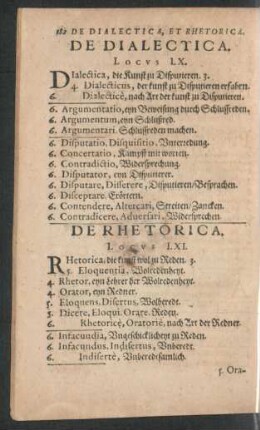 182 DE DIALECTICA, ET RHETORICA.
DE DIALECTICA.
LOCVS LX.
DIalectica, die Kunst zu Disputieren. 3.
4. Dialecticus, der kunst zu Disputieren erfaren.
Dialecticè, nach Art der kunst zu Disputieren.
6. Argumentatio, eyn Beweisung durch Schlußreden.
6. Argumentum, eyn Schlußred.
6. Argumentari. Schlußreden machen.
6. Disputatio. Disquisitio. Vnterredung.
6. Concertatio, Kampff mit worten.
6. Contradictio, Widersprechung.
6. Disputator, eyn Disputierer.
6. Disputare, Disserere, Disputieren/Besprachen.
6. Disceptare. Erörtern.
6. Contendere, Altercari, Streiten/Zancken.
6. Contradicere, Aduersari. Widersprechen.
DE RHETORICA.
LOCVS LXI.
RHetorica, die kunst wol zu Reden. 3.
5. Eloquentia. Wolredenheyt.
4. Rhetor, eyn Lehrer der Wolredenheyt.
4. Orator, eyn Redner.
5. Eloquens, Disertus, Wolberedt.
5. Dicere, Eloqui. Orare. Reden.
6. Rhetoricè, Oratoriè, nach Art der Redner.
6. Infacundia, Vngeschicklicheyt zu Reden.
6. Infacundus. Indisertus, Vnberedt.
6. Indisertè, Vnberedtsamlich.
5. Ora-